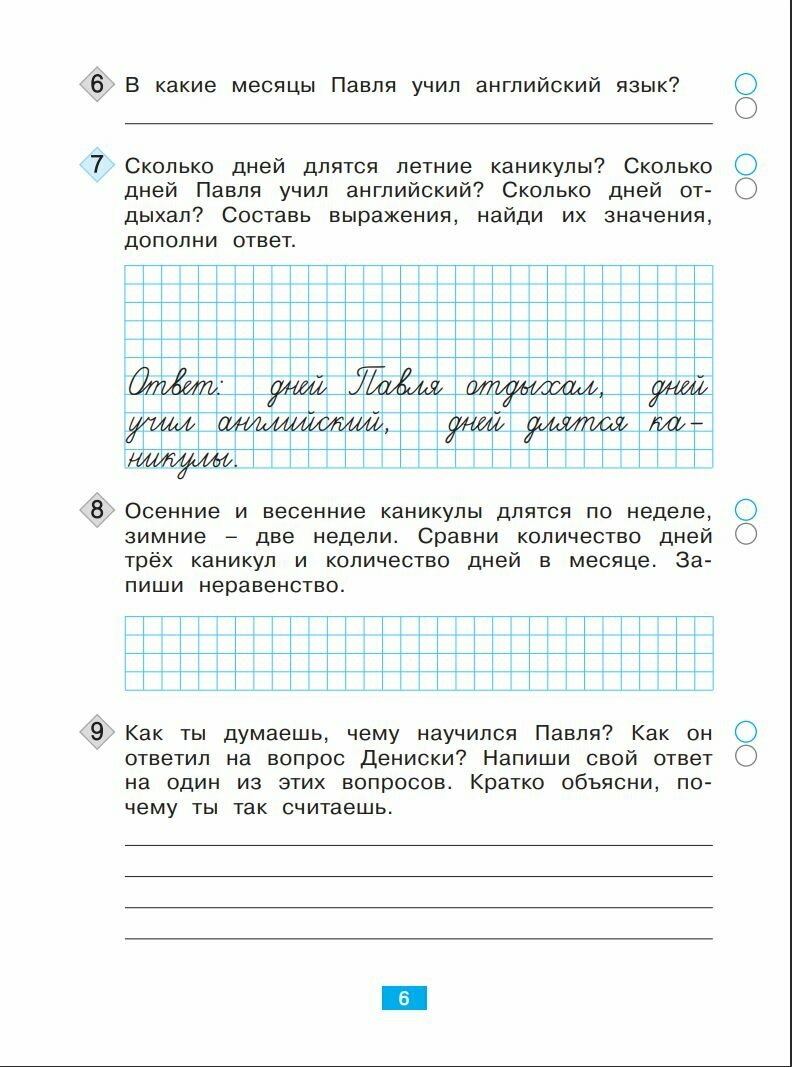 6 В какие месяцы Павля учил английский язык?
7 Сколько дней длятся летние каникулы? Сколько
дней Павля учил английский? Сколько дней от-
дыхал? Составь выражения, найди их значения,
дополни ответ.
Ответ: дней Павля отдыхал, дней
учил английский, дней длятся ка-
никулы.
8 Осенние и весенние каникулы длятся по неделе,
зимние – две недели. Сравни количество дней
трёх каникул и количество дней в месяце. За-
пиши неравенство.
9 Как ты думаешь, чему научился Павля? Как он
ответил на вопрос Дениски? Напиши свой ответ
на один из этих вопросов. Кратко объясни, по-
чему ты так считаешь.
6